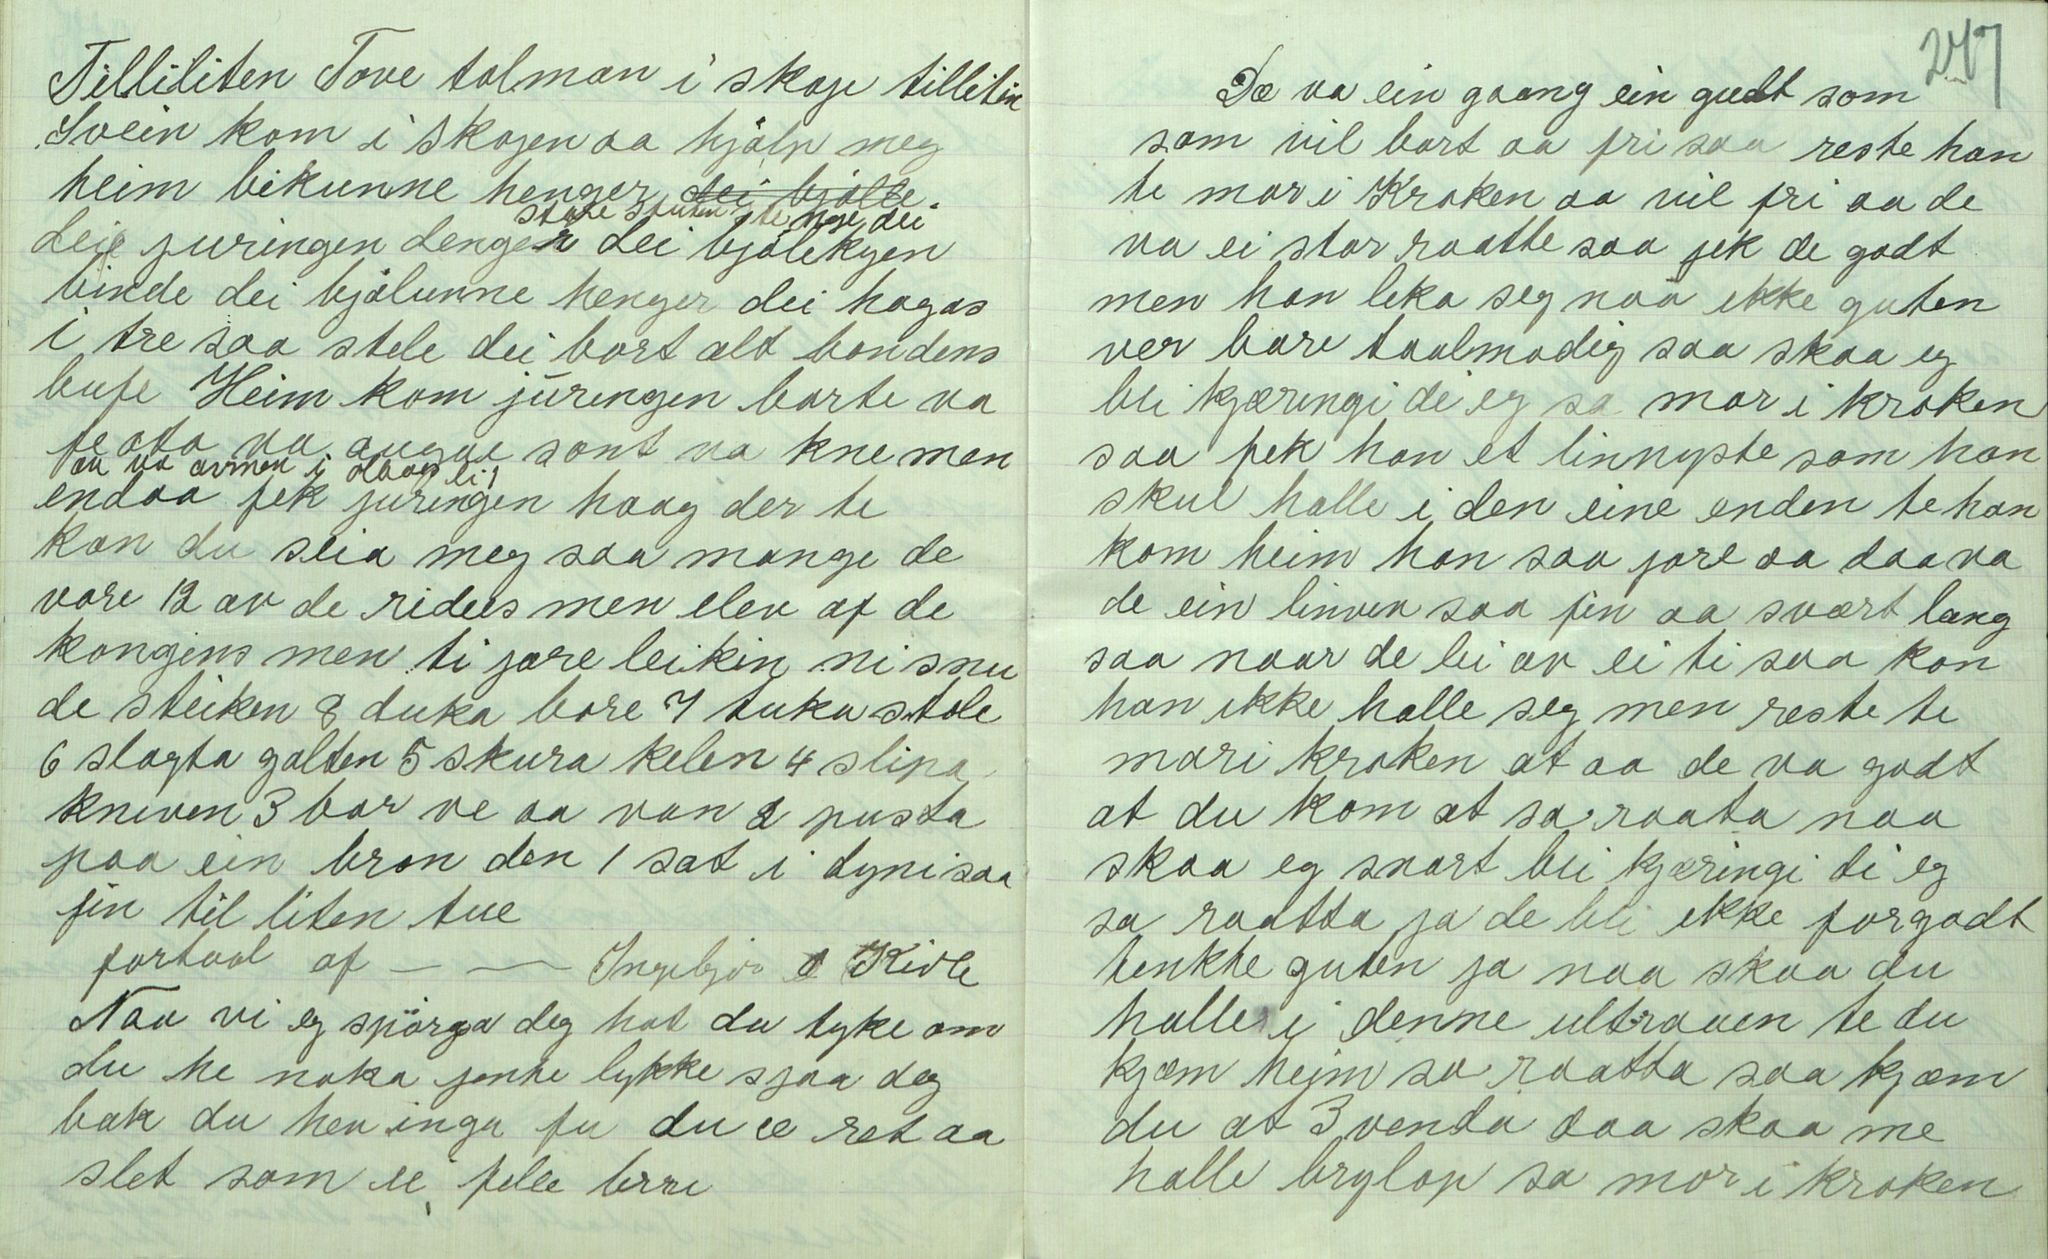 Tilliliten Tove tolman i skoje tillitin
Svein kom i skogen aa hjälp meg
heim bikunne henger dei bjolle.
store stuten stenge dei
deie juringen denger dei bjölekyen
binde dei bjölunne henger dei hagas
i tre saa stele dei bort alt bondens
bufe Heim kom juringen borte va
feota va augae sont va kne men
aa va armen i olbaag li
endaa fek juringen haag der te
kan du seia meg saa mange de
vare 12 av de ridees men elev af de
kongens men ti jore leikin ni snu
de steiken 8 duka bore 7 tuka stole
6 slagta galten 5 skura kelen 4 slipa
kneven 3 bar ve aa van 2 pusta
paa ein bron den 1 sat i dyni saa
fin til liten tue
fortaal af — — Ingebjör Kivle
Naa vi eg spörga deg hot du tyke om
du he noka jente lykke sjaa deg
bak du hev inga fu du æ ret aa
slet som ei fele brri
247
Dæ va ein gaang ein gudt som
som vil bort aa fri saa reste han
te mor i Kroken aa vil fri aa de
va ei stor raatte saa jek de godt
men han leka seg naa ikke guten
ver bare taalmodig saa skaa eg
bli kjæringi di eg sa mor i kroken
saa fek han et linnyste som han
skul halle i den eine enden te han
kom heim han saa jore aa daa va
de ein linvev saa fin aa svært lang
saa naar de lei av ei ti saa kon
han ikke halle seg men reste te
mor i kroken at aa de va godt
at du kom at sa raata naa
skaa eg snart bli kjæringi di eg
sa raatta ja de bli ikke forgodt
tenkte guten ja naa skaa du
halle i denne ultraaen te du
kjæm hejm sa raatta saa kjæm
du at 3 venda daa skaa me
halle brylop sa mor i kroken